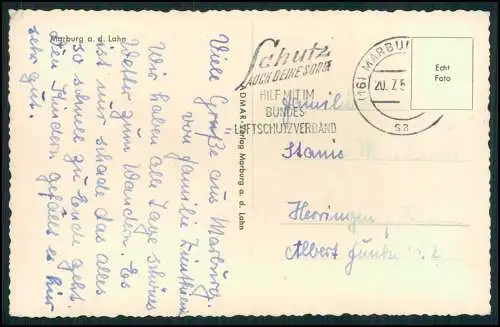 Marburg a. d. Lahn
Viele Grüße aus Marburg
von Familie
Wir haben alle Tage schönes
Wetter zum Wandern. Es
ist nur schade das alles
so schnell zu Ende geht.
Den Kindern gefällt es hier
sehr gut.
ADMAR-Verlag Marburg a. d. Lahn
Schutz
AUCH DEINE SORGE
HILF MIT IM
BUNDES-
LUFTSCHUTZVERBAND
(16) MARBU
20. 7. 5
sa
Echt
Foto
Familie
Stanis
Herringen
Albert Funk